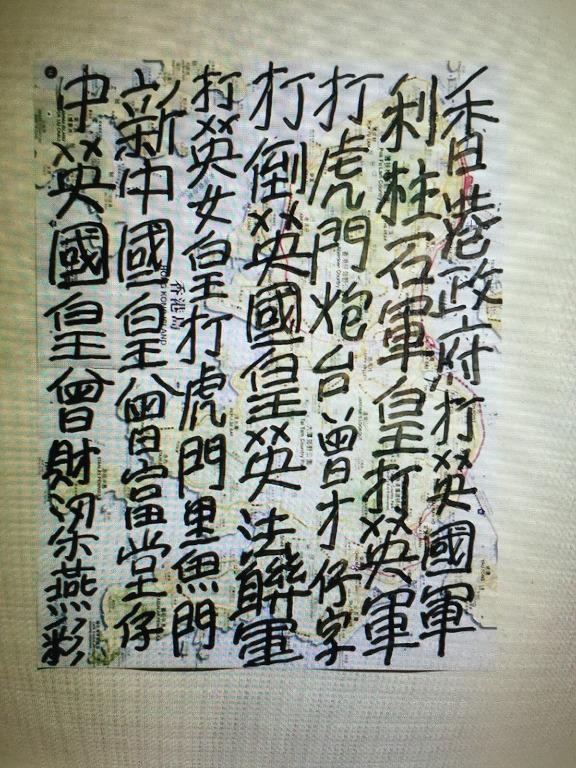 香港政府打英國軍
利柱石軍皇打英軍
打虎門炮台曾才仔字
打倒英國皇英法聯軍
打英女皇打虎門里魚門
新中國皇曾富堂仔
中英國皇曾財燕彩
香港島
HONG KONG ISLAND